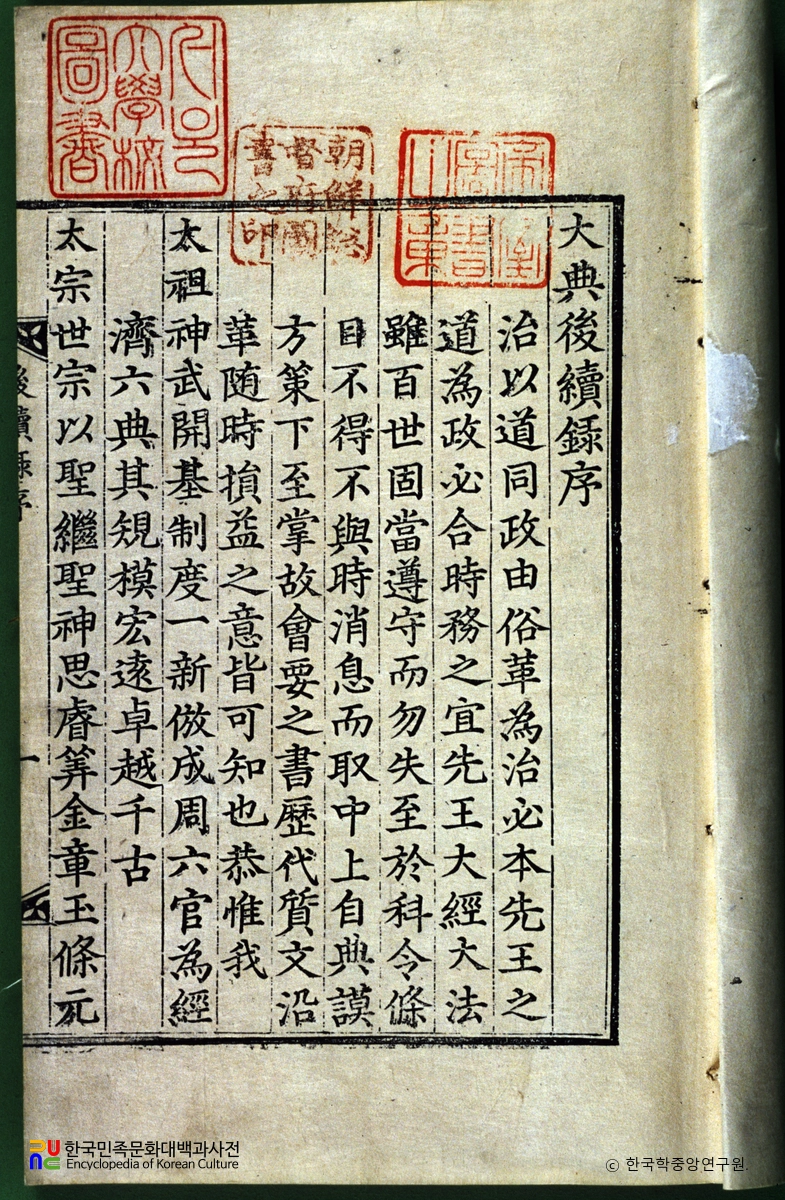 大典後續錄序
治以道同政由俗革為治必本先王之
道為政必合時務之宜先王大經大法
雖百世固當遵守而勿失至於科令條
目不得不與時消息而取中上自典謨
方策下至掌故會要之書歷代質文沿
革随時損益之意皆可知也恭惟我
太祖神武開基制度一新倣成周六官為經
濟六典其䂓模宏遠卓越千古
太宗世宗以聖繼聖神思睿筭金章玉條元
後續錄序
一
朝鮮総
督府圖
書之印
文學校
圖書
한국민족문화대백과사전
Encyclopedia of Korean Culture
© 한국학중앙연구원.